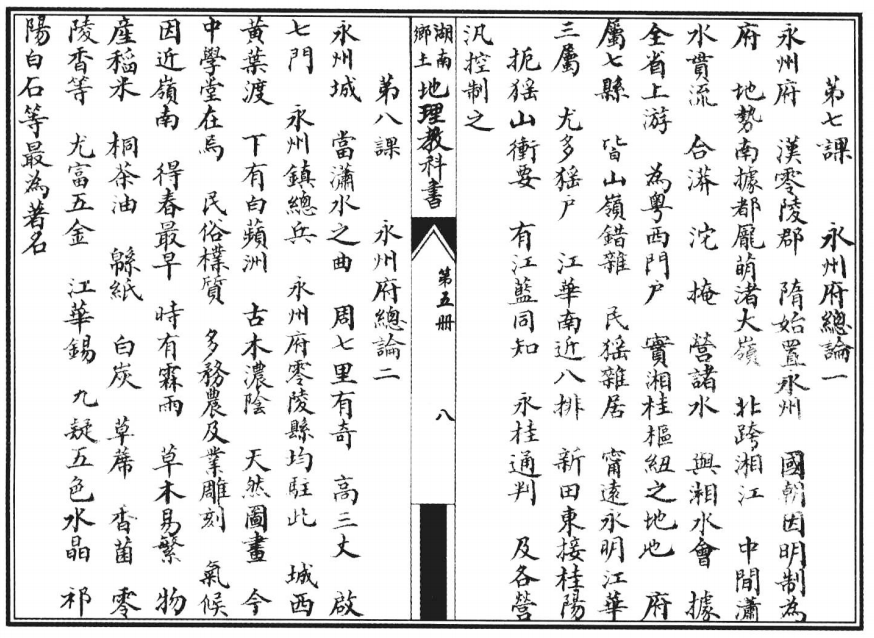 第七課　永州府總論一
永州府　漢零陵郡　隋始置永州　國朝因明制為
府　地勢南據都龐萌渚大嶺　北跨湘江　中間瀟
水貫流　合漭　沱　掩　營諸水　與湘水會　據
全省上游　為粵西門戶　實湘桂樞紐之地也　府
屬七縣　皆山嶺錯雜　民猺雜居　甯遠永明江華
三屬　尤多猺戶　江華南近八排　新田東接桂陽
扼猺山衝要　有江藍同知　永桂通判　及各營
汛控制之
湖南鄉土地理教科書　第五冊　八
第八課　永州府總論二
永州城　當瀟水之曲　周七里有奇　高三丈　啟
七門　永州鎮總兵　永州府零陵縣均駐此　城西
黃葉渡　下有白蘋洲　古木濃陰　天然圖畫　今
中學堂在焉　民俗樸質　多務農及業雕刻　氣候
因近嶺南　得春最早　時有霖雨　草木易繁　物
產稻米　桐茶油　緜紙　白炭　草蓆　香菌　零
陵香等　尤富五金　江華錫　九疑五色水晶　祁
陽白石等最為著名